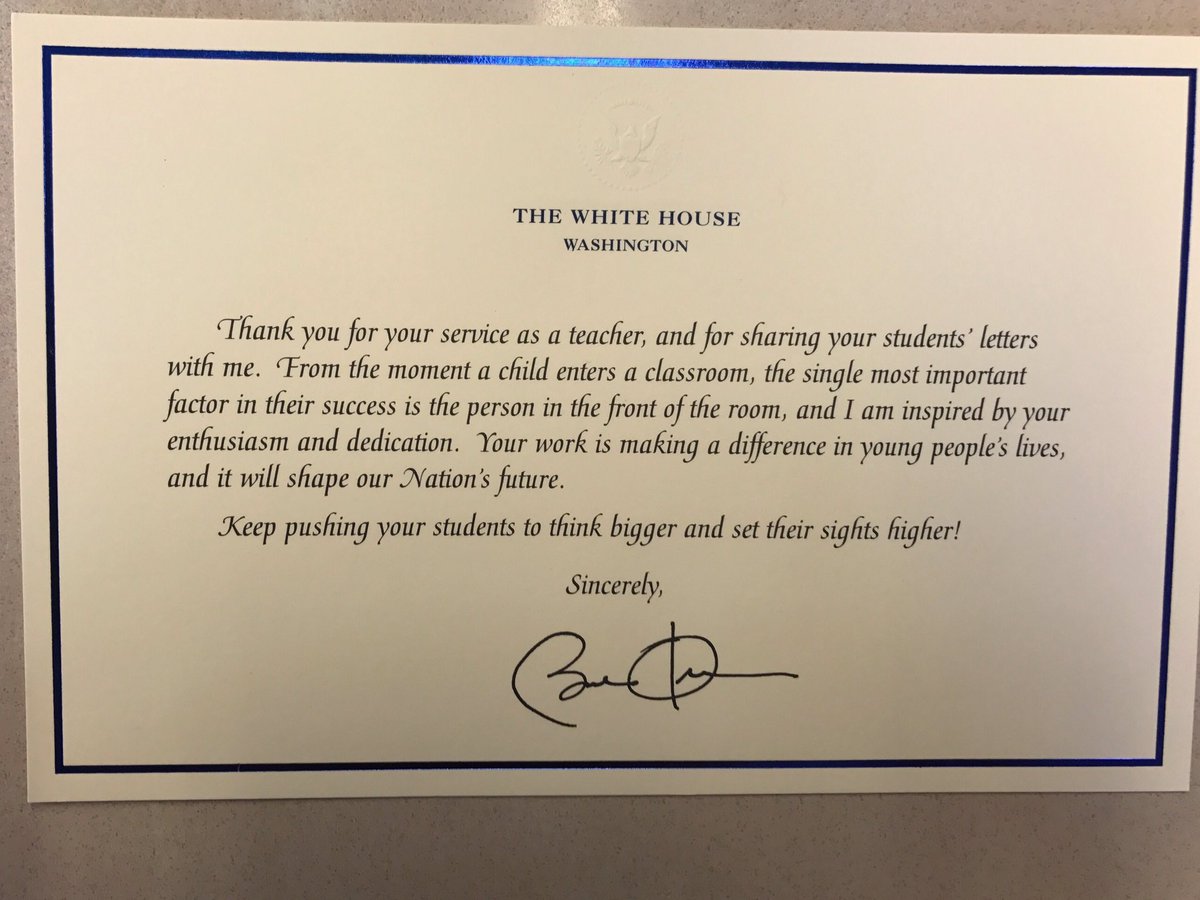 THE WHITE HOUSE
WASHINGTON
Thank you for your service as a teacher, and for sharing your students' letters
with me. From the moment a child enters a classroom, the single most important
factor in their success is the person in the front of the room, and I am inspired by your
enthusiasm and dedication. Your work is making a difference in young people's lives,
and it will shape our Nation's future.
Keep pushing your students to think bigger and set their sights higher!
Sincerely,